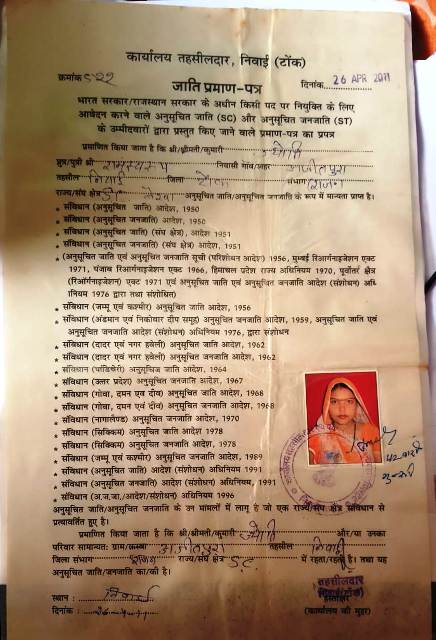 कार्यालय तहसीलदार, निवाई (टोंक)
क्रमांक 522 दिनांक 26 APR 2011
जाति प्रमाण-पत्र
भारत सरकार/राजस्थान सरकार के अधीन किसी पद पर नियुक्ति के लिए
आवेदन करने वाले अनुसूचित जाति (SC) और अनुसूचित जनजाति (ST)
के उम्मीदवारों द्वारा प्रस्तुत किए जाने वाले प्रमाण-पत्र का प्रपत्र
प्रमाणित किया जाता है कि श्री/श्रीमती/कुमारी
पुत्र/पुत्री श्री रामस्वरूप निवासी गांव/शहर अजीतपुरा
तहसील निवाई जिला टोंक संभाग
राज्य/संघ क्षेत्र अनुसूचित जाति/अनुसूचित जनजाति के रूप में मान्यता प्राप्त है।
* संविधान (अनुसूचित जाति) आदेश, 1950
* संविधान (अनुसूचित जनजाति) आदेश, 1950
* संविधान (अनुसूचित जाति) (संघ क्षेत्र) आदेश, 1951
* संविधान (अनुसूचित जनजाति) (संघ क्षेत्र) आदेश, 1951
* (अनुसूचित जाति एवं अनुसूचित जनजाति सूची (परिशोधन आदेश) 1956, मुम्बई रिआर्गनाइजेशन एक्ट
1971, पंजाब रिआर्गनाइजेशन एक्ट 1966, हिमाचल प्रदेश राज्य अधिनियम 1970, पूर्वोत्तर क्षेत्र
(रिऑर्गनाइजेशन) एक्ट 1971 एवं अनुसूचित जाति एवं अनुसूचित जनजाति आदेश (संशोधन) अधि
नियम 1976 द्वारा तथा संशोधित)
* संविधान (जम्मू एवं कश्मीर) अनुसूचित जाति आदेश, 1956
* संविधान (अंडमान एवं निकोबार दीप समूह) अनुसूचित जनजाति आदेश, 1959, अनुसूचित जाति एवं
अनुसूचित जनजाति आदेश (संशोधन) अधिनियम 1976, द्वारा संशोधन
* संविधान (दादर एवं नगर हवेली) अनुसूचित जाति आदेश, 1962
* संविधान (दादर एवं नगर हवेली) अनुसूचित जनजाति आदेश, 1962
* संविधान (पांडिचेरी) अनुसूचित जाति आदेश, 1964
* संविधान (उत्तर प्रदेश) अनुसूचित जनजाति आदेश, 1967
* संविधान (गोवा, दमन एवं दीव) अनुसूचित जाति आदेश, 1968
* संविधान (गोवा, दमन एवं दीव) अनुसूचित जनजाति आदेश, 1968
* संविधान (नागालैण्ड) अनुसूचित जनजाति आदेश, 1970
* संविधान (सिक्किम) अनुसूचित जाति आदेश 1978
* संविधान (सिक्किम) अनुसूचित जनजाति आदेश, 1978
* संविधान (जम्मू एवं कश्मीर) अनुसूचित जनजाति आदेश, 1989
* संविधान (अनुसूचित जाति) आदेश (संशोधन) अधिनियम 1991
* संविधान (अनुसूचित जनजाति) आदेश (संशोधन) अधिनियम, 1991
* संविधान (अ.ज.जा./आदेश/संशोधन) अधिनियम 1996
अनुसूचित जाति/अनुसूचित जनजाति के उन मामलों में लागू है जो एक राज्य/संघ क्षेत्र संविधान से
प्रत्यावर्तित हुए है।
प्रमाणित किया जाता है कि श्री/श्रीमती/कुमारी और/या उनका
परिवार सामान्यतः ग्राम/कस्बा अजीतपुरा तहसील निवाई
जिला संभाग राज्य/संघ क्षेत्र S.C. में रहता/रहती है। तथा यह
अनुसूचित जाति/जनजाति का/की है।
तहसीलदार
निवाई (टोंक)
स्थान : निवाई हस्ताक्षर
दिनांक : (कार्यालय की मुहर)